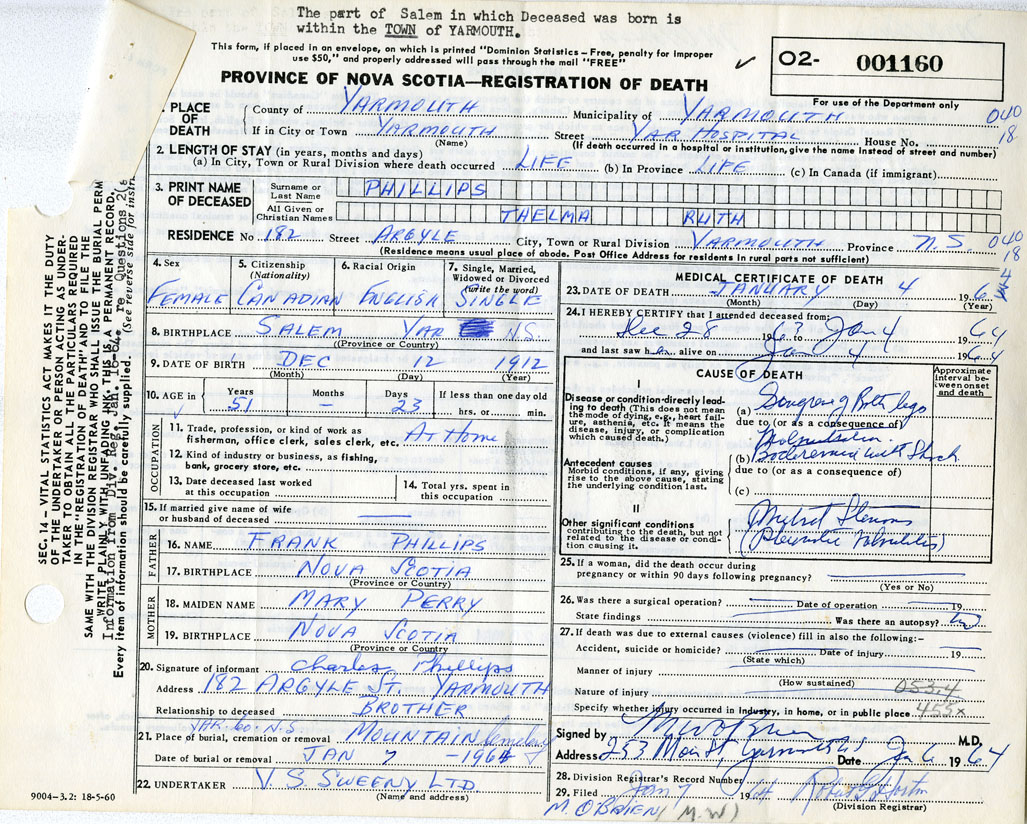 The part of Salem in which Deceased was born is
within the TOWN of YARMOUTH.
This form, if placed in an envelope, on which is printed "Dominion Statistics – Free, penalty for improper
use $50," and properly addressed will pass through the mail "FREE"
✓ O2- 001160
For use of the Department only
PROVINCE OF NOVA SCOTIA—REGISTRATION OF DEATH
PLACE OF DEATH
County of YARMOUTH Municipality of YARMOUTH 040
If in City or Town YARMOUTH Street YAR HOSPITAL House No. 18
(Name) (If death occurred in a hospital or institution, give the name instead of street and number)
2. LENGTH OF STAY (in years, months and days)
(a) In City, Town or Rural Division where death occurred LIFE (b) In Province LIFE (c) In Canada (if immigrant)
3. PRINT NAME OF DECEASED
Surname or Last Name PHILLIPS
All Given or Christian Names THELMA RUTH
RESIDENCE No. 182 Street ARGYLE City, Town or Rural Division YARMOUTH Province N.S. 040
18
(Residence means usual place of abode. Post Office Address for residents in rural parts not sufficient)
4. Sex
FEMALE
5. Citizenship
(Nationality)
CANADIAN
6. Racial Origin
ENGLISH
7. Single, Married,
Widowed or Divorced
(write the word)
SINGLE
8. BIRTHPLACE SALEM YAR N.S.
(Province or Country)
9. DATE OF BIRTH DEC 12 1912
(Month) (Day) (Year)
10. AGE in
Years 51
Months –
Days 23
If less than one day old
hrs. or min.
OCCUPATION
11. Trade, profession, or kind of work as
fisherman, office clerk, sales clerk, etc. At Home
12. Kind of industry or business, as fishing,
bank, grocery store, etc.
13. Date deceased last worked
at this occupation
14. Total yrs. spent in
this occupation
15. If married give name of wife
or husband of deceased
FATHER
16. NAME FRANK PHILLIPS
17. BIRTHPLACE NOVA SCOTIA
(Province or Country)
MOTHER
18. MAIDEN NAME MARY PERRY
19. BIRTHPLACE NOVA SCOTIA
(Province or Country)
20. Signature of informant Charles Phillips
Address 182 ARGYLE ST. YARMOUTH
Relationship to deceased BROTHER
YAR. CO. N.S
21. Place of burial, cremation or removal MOUNTAIN Cemetery
Date of burial or removal JAN 7 - 1964
22. UNDERTAKER V. S. SWEENY LTD
(Name and address)
9004-3.2: 18-5-60
MEDICAL CERTIFICATE OF DEATH
23. DATE OF DEATH JANUARY 4 196 4
(Month) (Day) (Year)
24. I HEREBY CERTIFY that I attended deceased from:
Dec 28 1963 to Jan 4 1964
and last saw her alive on Jan 4 1964
CAUSE OF DEATH
Approximate
interval be-
tween onset
and death
I
Disease or condition directly lead-
ing to death (This does not mean
the mode of dying, e.g., heart fail-
ure, asthenia, etc. It means the
disease, injury, or complication
which caused death.)
(a) Gangrene of Both legs
due to (or as a consequence of)
Antecedent causes
Morbid conditions, if any, giving
rise to the above cause, stating
the underlying condition last.
(b) with Shock
due to (or as a consequence of)
(c)
II
Other significant conditions
contributing to the death, but not
related to the disease or condi-
tion causing it.
Mitral Stenosis
25. If a woman, did the death occur during
pregnancy or within 90 days following pregnancy?
(Yes or No)
26. Was there a surgical operation? Date of operation 19
State findings Was there an autopsy?
27. If death was due to external causes (violence) fill in also the following:-
Accident, suicide or homicide? Date of injury 19
(State which)
Manner of injury
(How sustained)
Nature of injury 053.4
Specify whether injury occurred in Industry, in home, or in public place 455x
Signed by M W O'Brien M.D,
Address 253 Main St, Yarmouth N.S Date Jan 6 1964
28. Division Registrar's Record Number
29. Filed Jan 7 1964 Robert G Horton
(Division Registrar)
M. O'BRIEN (M.W)
SEC. 14 – VITAL STATISTICS ACT MAKES IT THE DUTY
OF THE UNDERTAKER OR PERSON ACTING AS UNDER-
TAKER TO OBTAIN ALL THE PARTICULARS REQUIRED
IN THE "REGISTRATION OF DEATH" AND TO FILE THE
SAME WITH THE DIVISION REGISTRAR WHO SHALL ISSUE THE BURIAL PERM
WRITE PLAINLY WITH UNFADING INK. THIS IS A PERMANENT RECORD.
Information from Div. Reg. Jan. 16-64. re Questions 2(
Every item of information should be carefully supplied. (See reverse side for instru